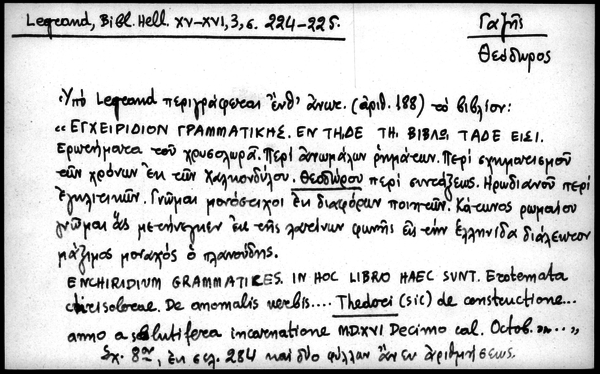 Legrand, Bibl. Hell. XV-XVI, 3, σ. 224-225.
Γαζῆς
Θεόδωρος
Ὑπὸ Legrand περιγράφεται ἔνθ' ἀνωτ. (ἀριθ. 188) τὸ βιβλίον:
« ΕΓΧΕΙΡΙΔΙΟΝ ΓΡΑΜΜΑΤΙΚΗΣ. ΕΝ ΤΗΔΕ ΤΗ ΒΙΒΛΩ ΤΑΔΕ ΕΙΣΙ.
Ερωτήματα τοῦ χρυσολωρᾶ. Περὶ ἀνωμάλων ῥημάτων. Περὶ σχηματισμοῦ
τῶν χρόνων ἐκ τῶν Χαλκονδύλου. Θεοδώρου περὶ συντάξεως. Ηρωδιανοῦ περὶ
ἐγκλιτικῶν. Γνῶμαι μονόστιχοι ἐκ διαφόρων ποιητῶν. Κάτωνος ρωμαίου
γνῶμαι ἃς μετήνεγκεν ἐκ τῆς λατίνων φωνῆς εἰς τὴν ἑλληνίδα διάλεκτον
μάξιμος μοναχὸς ὁ πλανούδης.
ENCHIRIDIUM GRAMMATICES. IN HOC LIBRO HAEC SUNT. Erotemata
chrisolorae. De anomalis verbis.... Thedorei (sic) de constructione...
anno a salutifera incarnatione MDXVI Decimo cal. Octob. ..... »
Σχ. 8ον, ἐκ σελ. 284 καὶ δύο φύλλων ἄνευ ἀριθμήσεως.